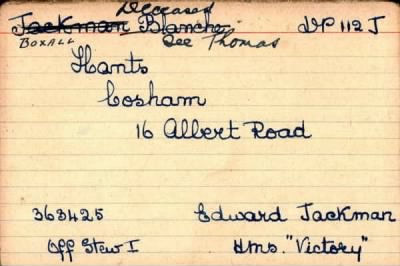 Deceased
Jackman Blanche DP 112 J
Boxall See Thomas
Hants
Cosham
16 Albert Road
363425 Edward Jackman
Off Stew I HMS. "Victory"